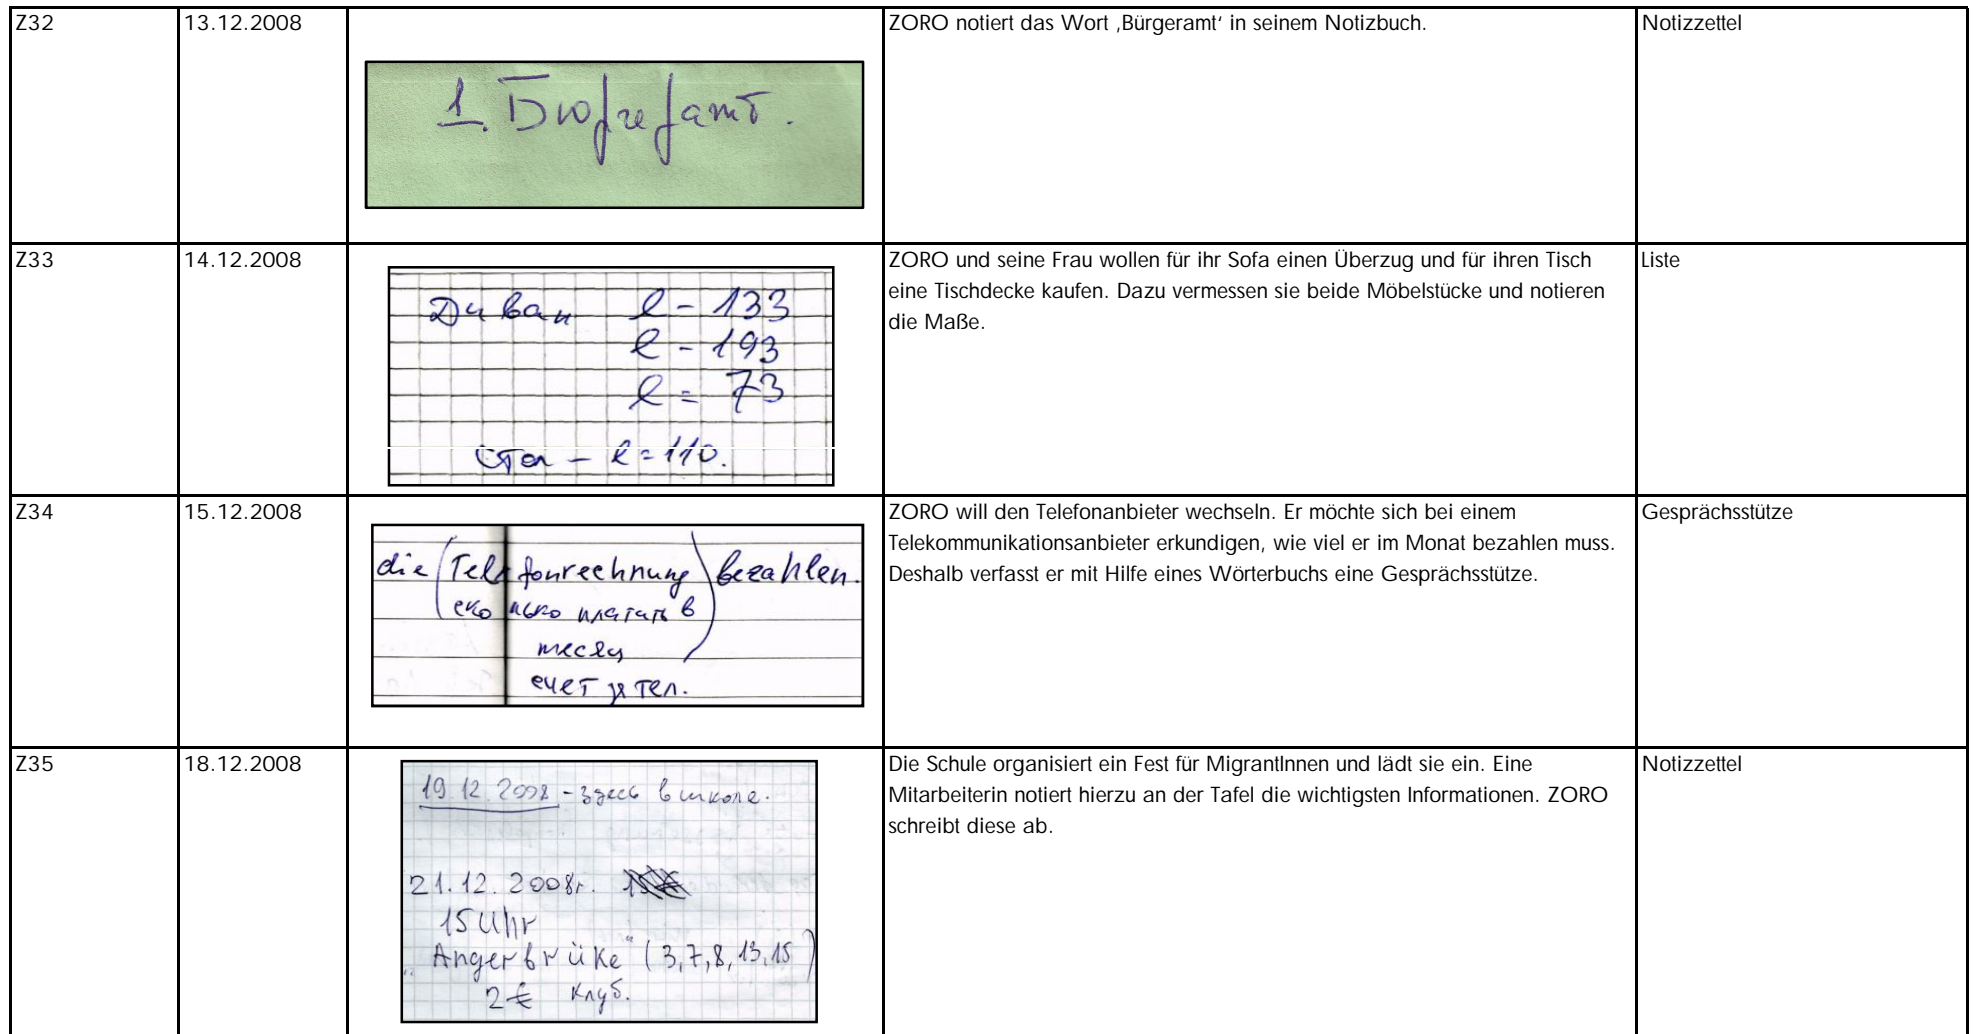 Z32
13.12.2008
1. Бюргерамт.
ZORO notiert das Wort ‚Bürgeramt‘ in seinem Notizbuch.
Notizzettel
Z33
14.12.2008
Диван l – 133
l – 193
l = 73
Стол – l = 110.
ZORO und seine Frau wollen für ihr Sofa einen Überzug und für ihren Tisch
eine Tischdecke kaufen. Dazu vermessen sie beide Möbelstücke und notieren
die Maße.
Liste
Z34
15.12.2008
die (Telefonrechnung) bezahlen.
сколько платить в
месяц
счет за тел.
ZORO will den Telefonanbieter wechseln. Er möchte sich bei einem
Telekommunikationsanbieter erkundigen, wie viel er im Monat bezahlen muss.
Deshalb verfasst er mit Hilfe eines Wörterbuchs eine Gesprächsstütze.
Gesprächsstütze
Z35
18.12.2008
19.12.2008 - здесь в школе.
21.12.2008г.
15 Uhr
„Angerbrüke“ (3,7,8,13,15)
2€ клуб.
Die Schule organisiert ein Fest für MigrantInnen und lädt sie ein. Eine
Mitarbeiterin notiert hierzu an der Tafel die wichtigsten Informationen. ZORO
schreibt diese ab.
Notizzettel